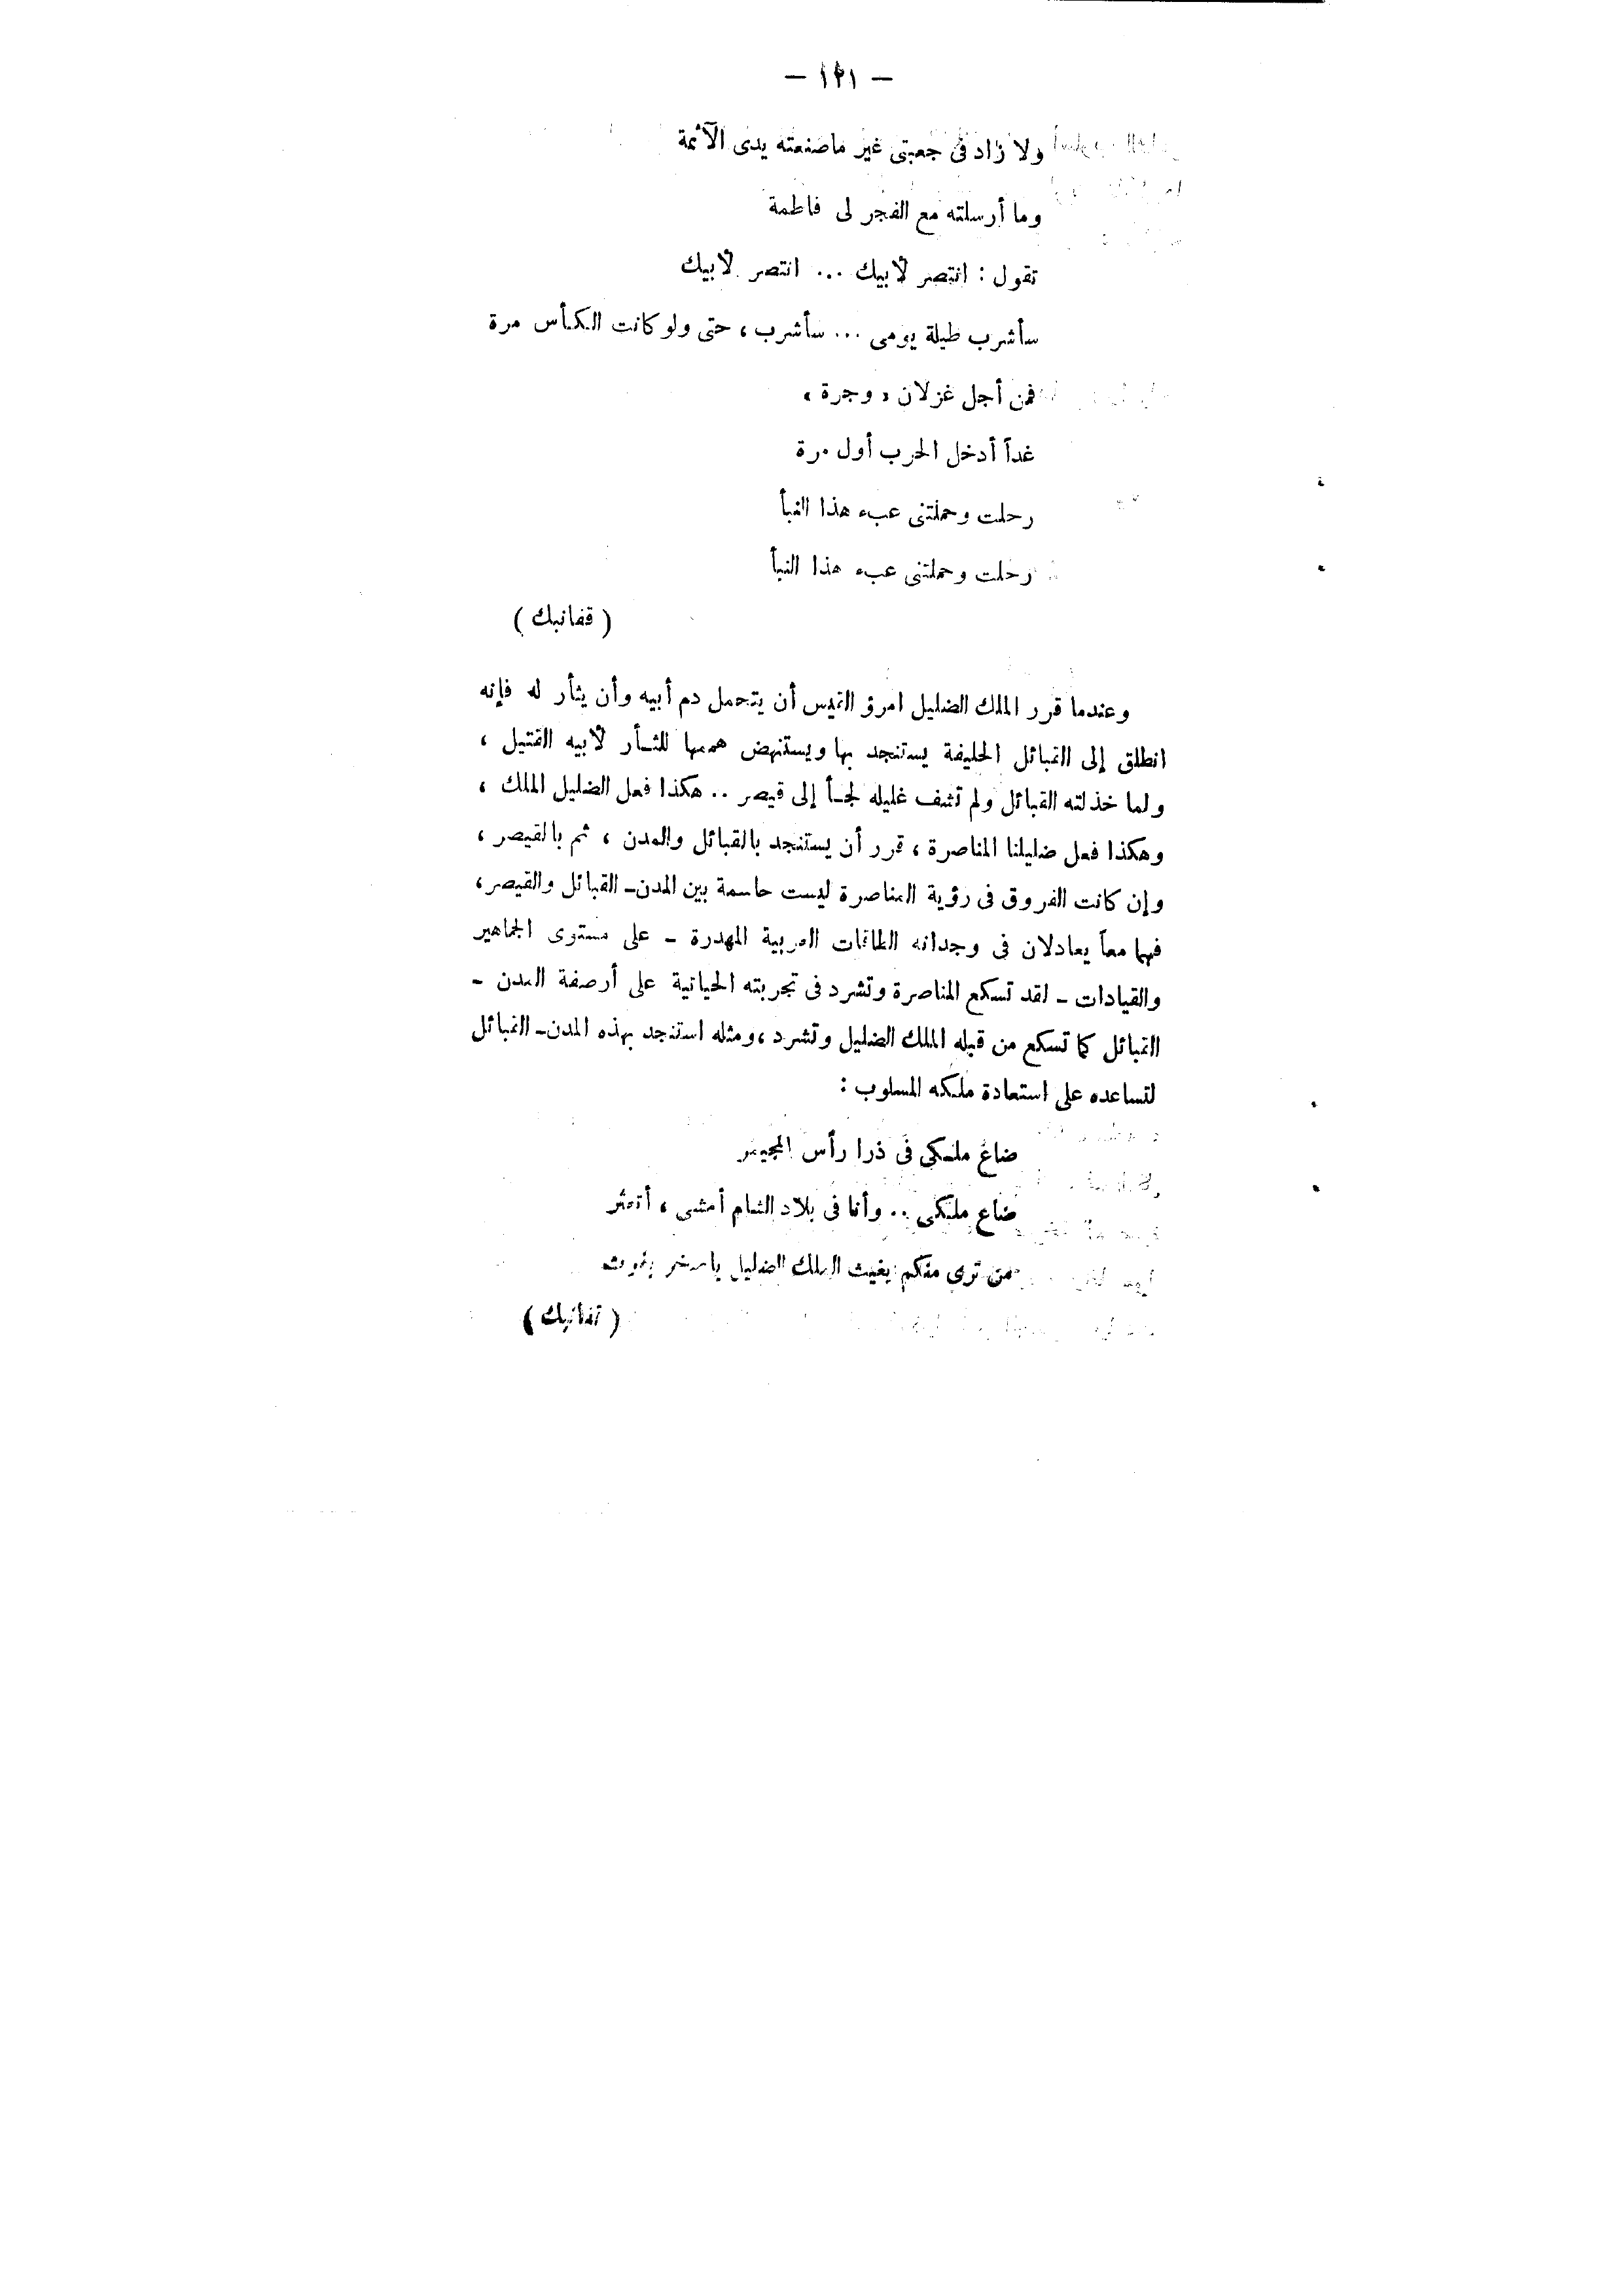 — ١٢١ —
ولا زاد فى جعبتى غير ماصنعته يدى الآثمة
وما أرسلته مع الفجر لى فاطمة
تقول : انتصر لأبيك ... انتصر لأبيك
سأشرب طيلة يومى ... سأشرب ، حتى ولو كانت الكأس مرة
فمن أجل غزلان « وجرة »
غداً أدخل الحرب أول مرة
رحلت وحملتنى عبء هذا النبأ
رحلت وحملتنى عبء هذا النبأ
( قفانبك )
وعندما قرر الملك الضليل امرؤ القيس أن يتحمل دم أبيه وأن يثأر له فإنه
انطلق إلى القبائل الحليفة يستنجد بها ويستنهض هممها للثأر لأبيه القتيل ،
ولما خذلته القبائل ولم تشف غليله لجأ إلى قيصر .. هكذا فعل الضليل الملك ،
وهكذا فعل ضليلنا المناصرة ، قرر أن يستنجد بالقبائل والمدن ، ثم بالقيصر ،
وإن كانت الفروق فى رؤية المناصرة ليست حاسمة بين المدن - القبائل والقيصر ،
فهما معاً يعادلان فى وجدانه الطاقات العربية المهدرة - على مستوى الجماهير
والقيادات - لقد تسكع المناصرة وتشرد فى تجربته الحياتية على أرصفة المدن -
القبائل كما تسكع من قبله الملك الضليل وتشرد ، ومثله استنجد بهذه المدن - القبائل
لتساعده على استعادة ملكه المسلوب :
ضاع ملكى فى ذرا رأس المجيمر
ضاع ملكى .. وأنا فى بلاد الشام أمشى ، أتعثر
من ترى منكم يغيث الملك الضليل
( قفانبك )